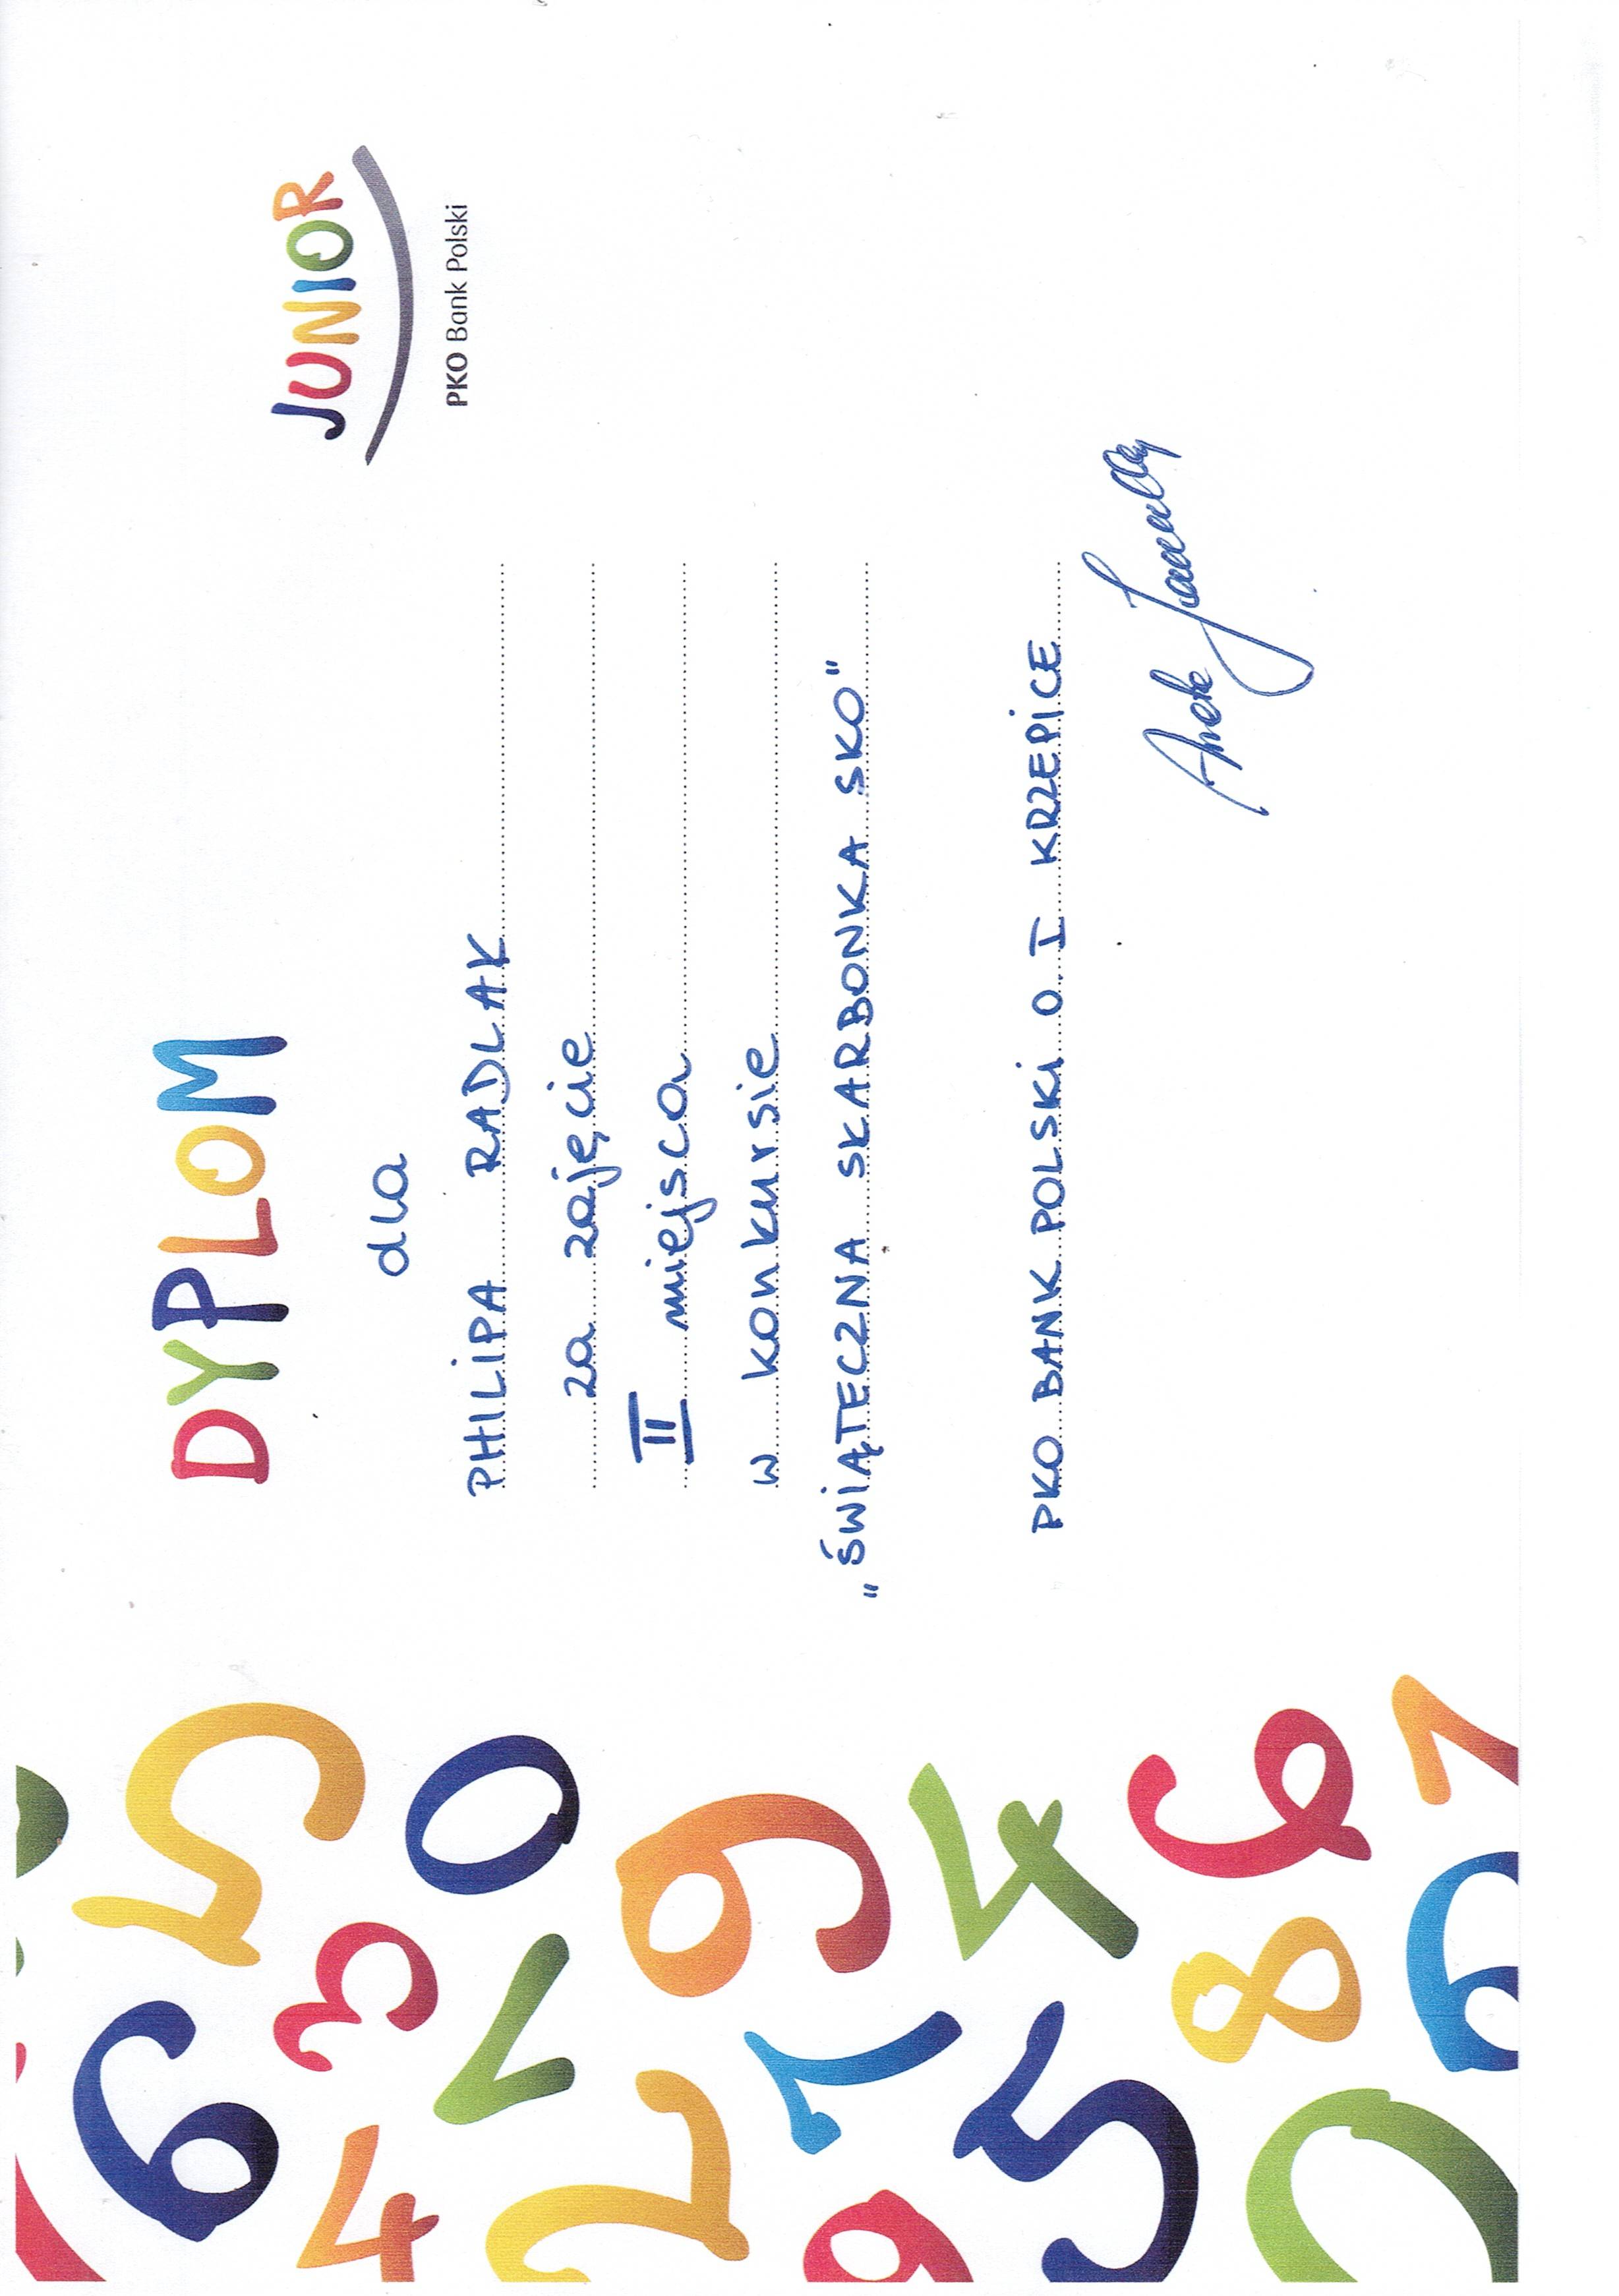 JUNIOR
PKO Bank Polski
DYPLOM
dla
PHILIPA RADLAK
za zajęcie
II miejsca
w konkursie
„ŚWIĄTECZNA SKARBONKA SKO"
PKO BANK POLSKI O. I KRZEPICE